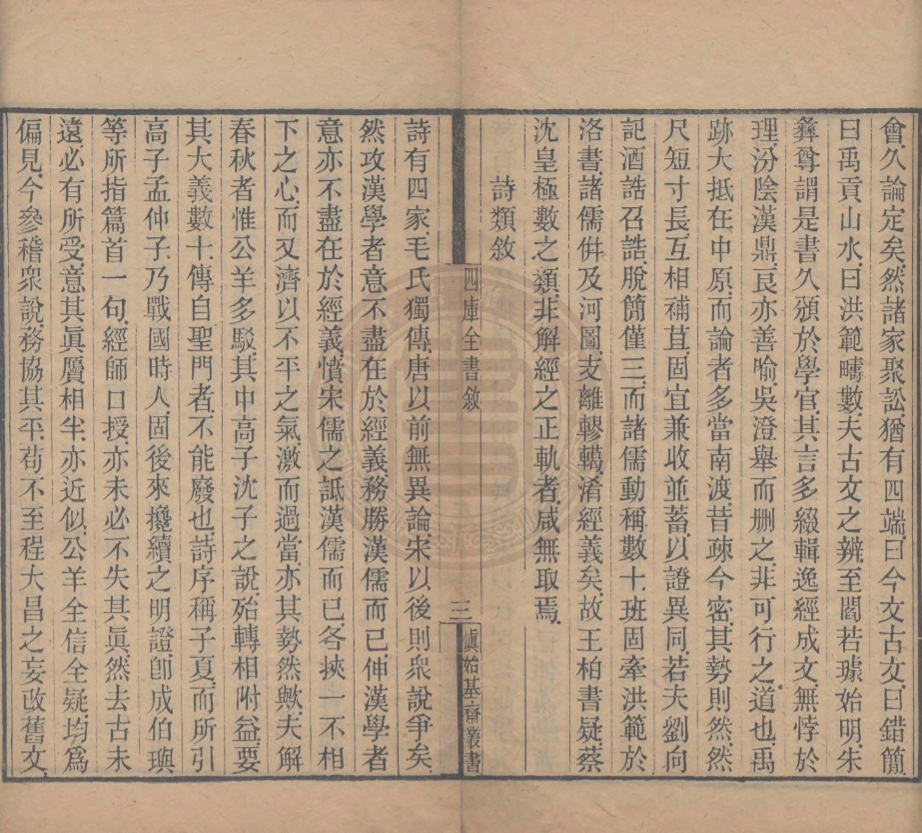 會久論定矣然諸家聚訟猶有四端曰今文古文曰錯簡
曰禹貢山水曰洪範疇數夫古文之辨至閻若璩始明朱
彝尊謂是書久頒於學官其言多綴輯逸經成文無悖於
理汾陰漢鼎艮亦善喻吳澄舉而刪之非可行之道也禹
跡大抵在中原而論者多當南渡昔疎今密其勢則然然
尺短寸長互相補苴固宜兼收並蓄以證異同若夫劉向
記酒誥召誥脫簡僅三而諸儒動稱數十班固牽洪範於
洛書諸儒倂及河圖支離轇轕淆經義矣故王柏書疑蔡
沈皇極數之類非解經之正軌者咸無取焉
詩類敘
四庫全書敘
三
愼始基齋叢書
詩有四家毛氏獨傳唐以前無異論宋以後則衆說爭矣
然攻漢學者意不盡在於經義務勝漢儒而已伸漢學者
意亦不盡在於經義憤宋儒之詆漢儒而已各挾一不相
下之心而又濟以不平之氣激而過當亦其勢然歟夫解
春秋者惟公羊多駁其中高子沈子之說殆轉相附益要
其大義數十傳自聖門者不能廢也詩序稱子夏而所引
高子孟仲子乃戰國時人固後來攙續之明證卽成伯璵
等所指篇首一句經師口授亦未必不失其眞然去古未
遠必有所受意其眞贋相半亦近似公羊全信全疑均爲
偏見今參稽衆說務協其平苟不至程大昌之妄改舊文